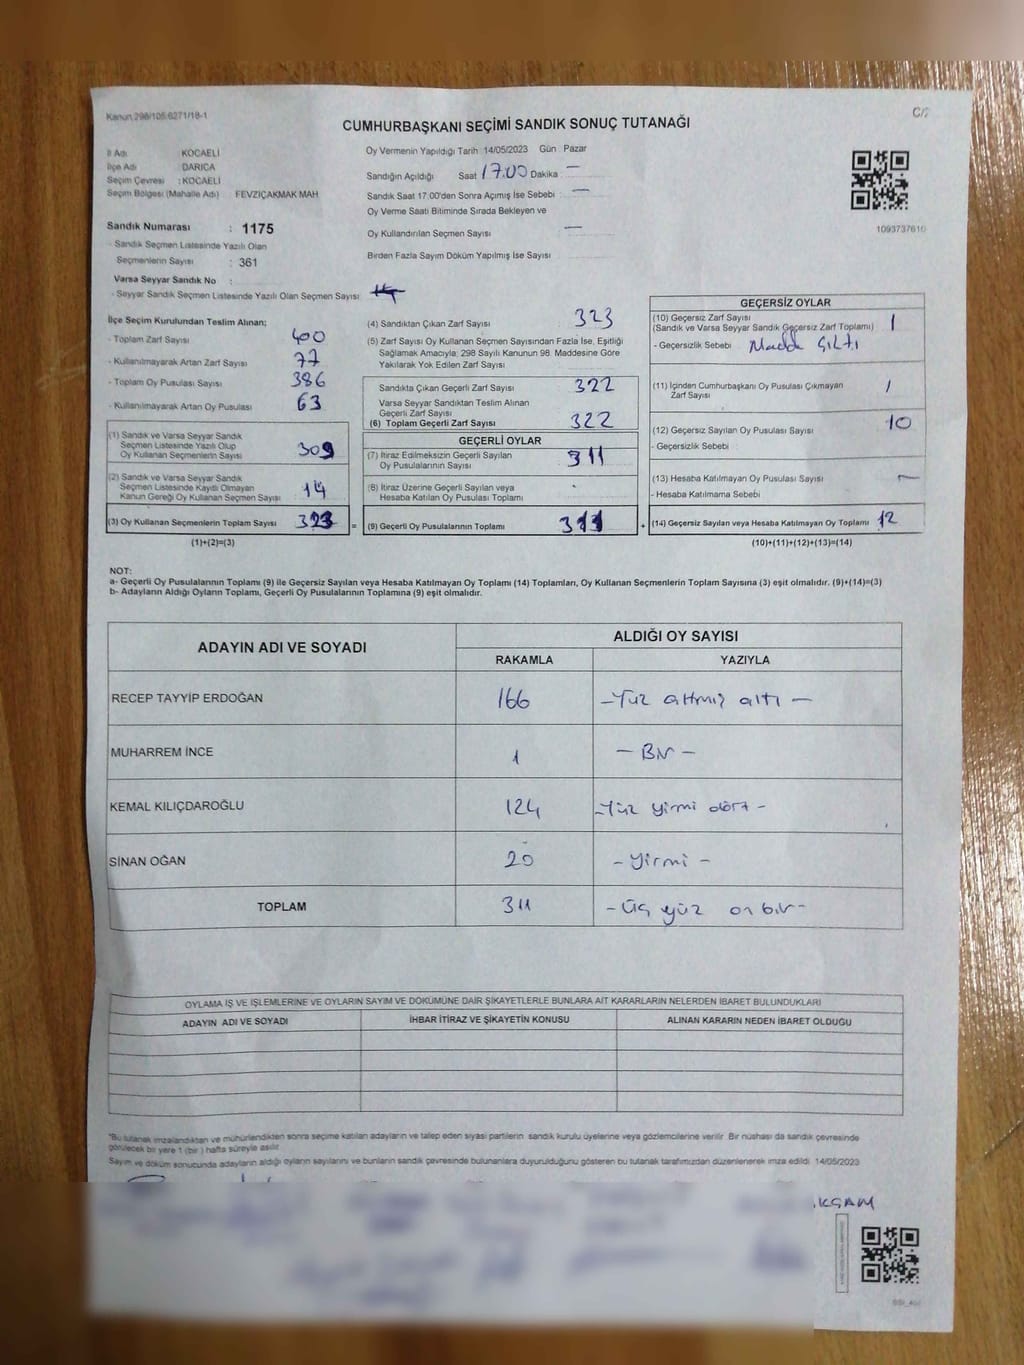 Kanun 298/105 6271/18-1
C/2
CUMHURBAŞKANI SEÇİMİ SANDIK SONUÇ TUTANAĞI
İl Adı KOCAELİ
İlçe Adı DARICA
Seçim Çevresi : KOCAELİ
Seçim Bölgesi (Mahalle Adı) FEVZİÇAKMAK MAH
Sandık Numarası : 1175
- Sandık Seçmen Listesinde Yazılı Olan
Seçmenlerin Sayısı : 361
Varsa Seyyar Sandık No :
- Seyyar Sandık Seçmen Listesinde Yazılı Olan Seçmen Sayısı
Oy Vermenin Yapıldığı Tarih 14/05/2023 Gün Pazar
Sandığın Açıldığı Saat 17.00 Dakika : —
Sandık Saat 17:00'den Sonra Açımış İse Sebebi : —
Oy Verme Saati Bitiminde Sırada Bekleyen ve
Oy Kullandırılan Seçmen Sayısı —
Birden Fazla Sayım Döküm Yapılmış İse Sayısı
1093737610
İlçe Seçim Kurulundan Teslim Alınan;
- Toplam Zarf Sayısı 400
- Kullanılmayarak Artan Zarf Sayısı 77
- Toplam Oy Pusulası Sayısı 386
- Kullanılmayarak Artan Oy Pusulası 63
(1) Sandık ve Varsa Seyyar Sandık
Seçmen Listesinde Yazılı Olup
Oy Kullanan Seçmenlerin Sayısı 309
(2) Sandık ve Varsa Seyyar Sandık
Seçmen Listesinde Kayıtlı Olmayan
Kanun Gereği Oy Kullanan Seçmen Sayısı 14
(3) Oy Kullanan Seçmenlerin Toplam Sayısı 323
(1)+(2)=(3)
(4) Sandıktan Çıkan Zarf Sayısı 323
(5) Zarf Sayısı Oy Kullanan Seçmen Sayısından Fazla İse, Eşitliği
Sağlamak Amacıyla; 298 Sayılı Kanunun 98. Maddesine Göre
Yakılarak Yok Edilen Zarf Sayısı
Sandıkta Çıkan Geçerli Zarf Sayısı 322
Varsa Seyyar Sandıktan Teslim Alınan
Geçerli Zarf Sayısı
(6) Toplam Geçerli Zarf Sayısı 322
GEÇERLİ OYLAR
(7) İtiraz Edilmeksizin Geçerli Sayılan
Oy Pusulalarının Sayısı 311
(8) İtiraz Üzerine Geçerli Sayılan veya
Hesaba Katılan Oy Pusulası Toplamı
= (9) Geçerli Oy Pusulalarının Toplamı 311
GEÇERSİZ OYLAR
(10) Geçersiz Zarf Sayısı
(Sandık ve Varsa Seyyar Sandık Geçersiz Zarf Toplamı) 1
- Geçersizlik Sebebi Madde ÇIKTI
(11) İçinden Cumhurbaşkanı Oy Pusulası Çıkmayan
Zarf Sayısı 1
(12) Geçersiz Sayılan Oy Pusulası Sayısı 10
- Geçersizlik Sebebi
(13) Hesaba Katılmayan Oy Pusulası Sayısı —
- Hesaba Katılmama Sebebi
+ (14) Geçersiz Sayılan veya Hesaba Katılmayan Oy Toplamı 12
(10)+(11)+(12)+(13)=(14)
NOT:
a- Geçerli Oy Pusulalarının Toplamı (9) ile Geçersiz Sayılan veya Hesaba Katılmayan Oy Toplamı (14) Toplamları, Oy Kullanan Seçmenlerin Toplam Sayısına (3) eşit olmalıdır. (9)+(14)=(3)
b- Adayların Aldığı Oyların Toplamı, Geçerli Oy Pusulalarının Toplamına (9) eşit olmalıdır.
ADAYIN ADI VE SOYADI ALDIĞI OY SAYISI
RAKAMLA YAZIYLA
RECEP TAYYİP ERDOĞAN 166 -Yüz altmış altı -
MUHARREM İNCE 1 - Bir -
KEMAL KILIÇDAROĞLU 124 -Yüz yirmi dört -
SİNAN OĞAN 20 - yirmi -
TOPLAM 311 - üç yüz on bir -
OYLAMA İŞ VE İŞLEMLERİNE VE OYLARIN SAYIM VE DÖKÜMÜNE DAİR ŞİKAYETLERLE BUNLARA AİT KARARLARIN NELERDEN İBARET BULUNDUKLARI
ADAYIN ADI VE SOYADI İHBAR İTİRAZ VE ŞİKAYETİN KONUSU ALINAN KARARIN NEDEN İBARET OLDUĞU
*Bu tutanak imzalandıktan ve mühürlendikten sonra seçime katılan adayların ve talep eden siyasi partilerin sandık kurulu üyelerine veya gözlemcilerine verilir. Bir nüshası da sandık çevresinde
görülecek bir yere 1 (bir) hafta süreyle asılır.
Sayım ve döküm sonucunda adayların aldığı oyların sayılarını ve bunların sandık çevresinde bulunanlara duyurulduğunu gösteren bu tutanak tarafımızdan düzenlenerek imza edildi. 14/05/2023